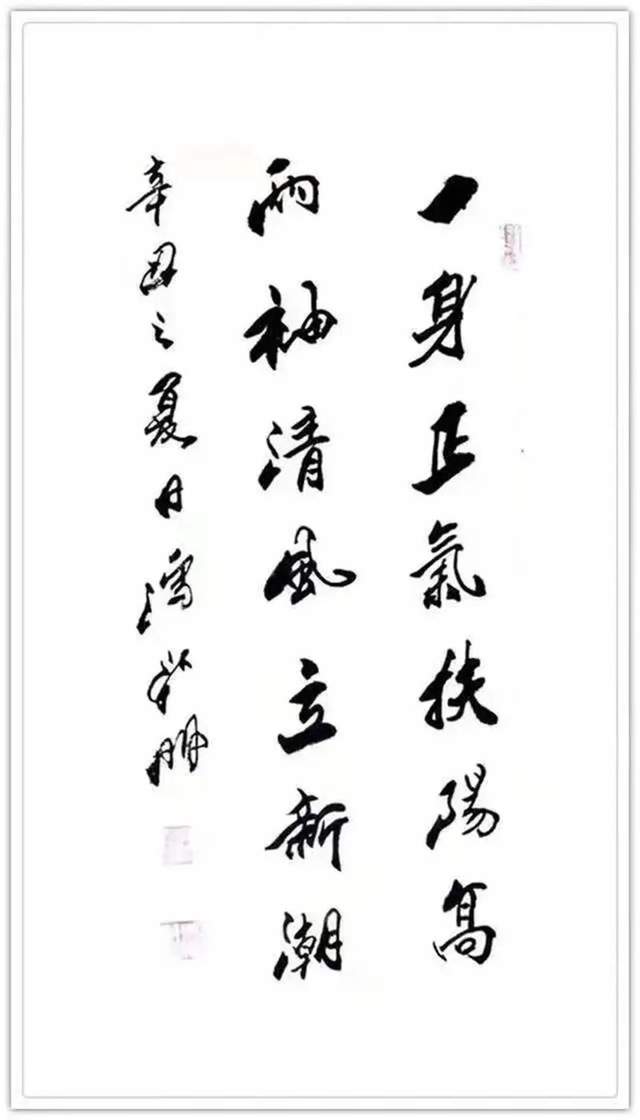 一身正氣扶陽高
兩袖清風立新潮
辛丑之夏月鴻